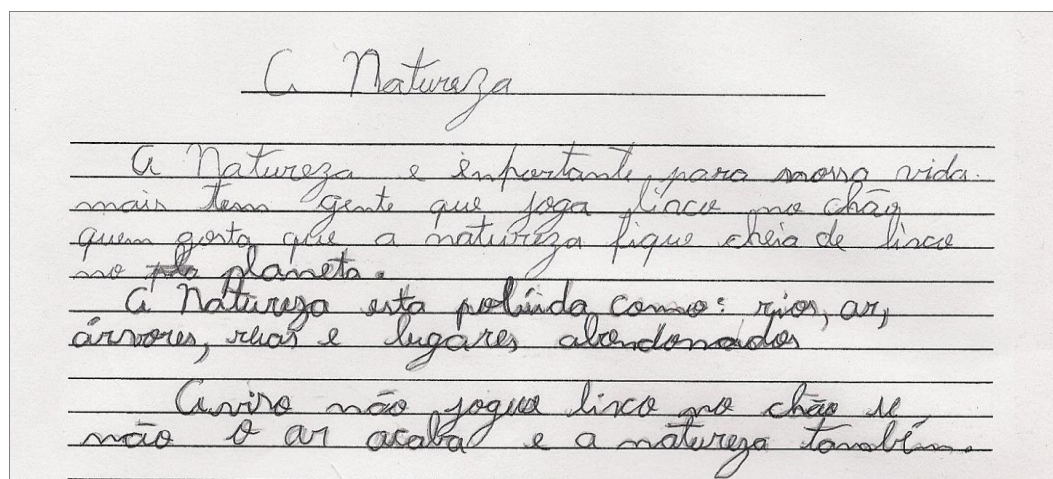 A Natureza
A Natureza e importante para nossa vida.
mais tem gente que joga lixco no chão
quem gosta que a natureza fique cheia de lixco
no planeta.
A Natureza esta poluida como: rios, ar,
árvores, ruas e lugares abondonados
Aviso não jogue lixco no chão se
não o ar acaba e a natureza também.